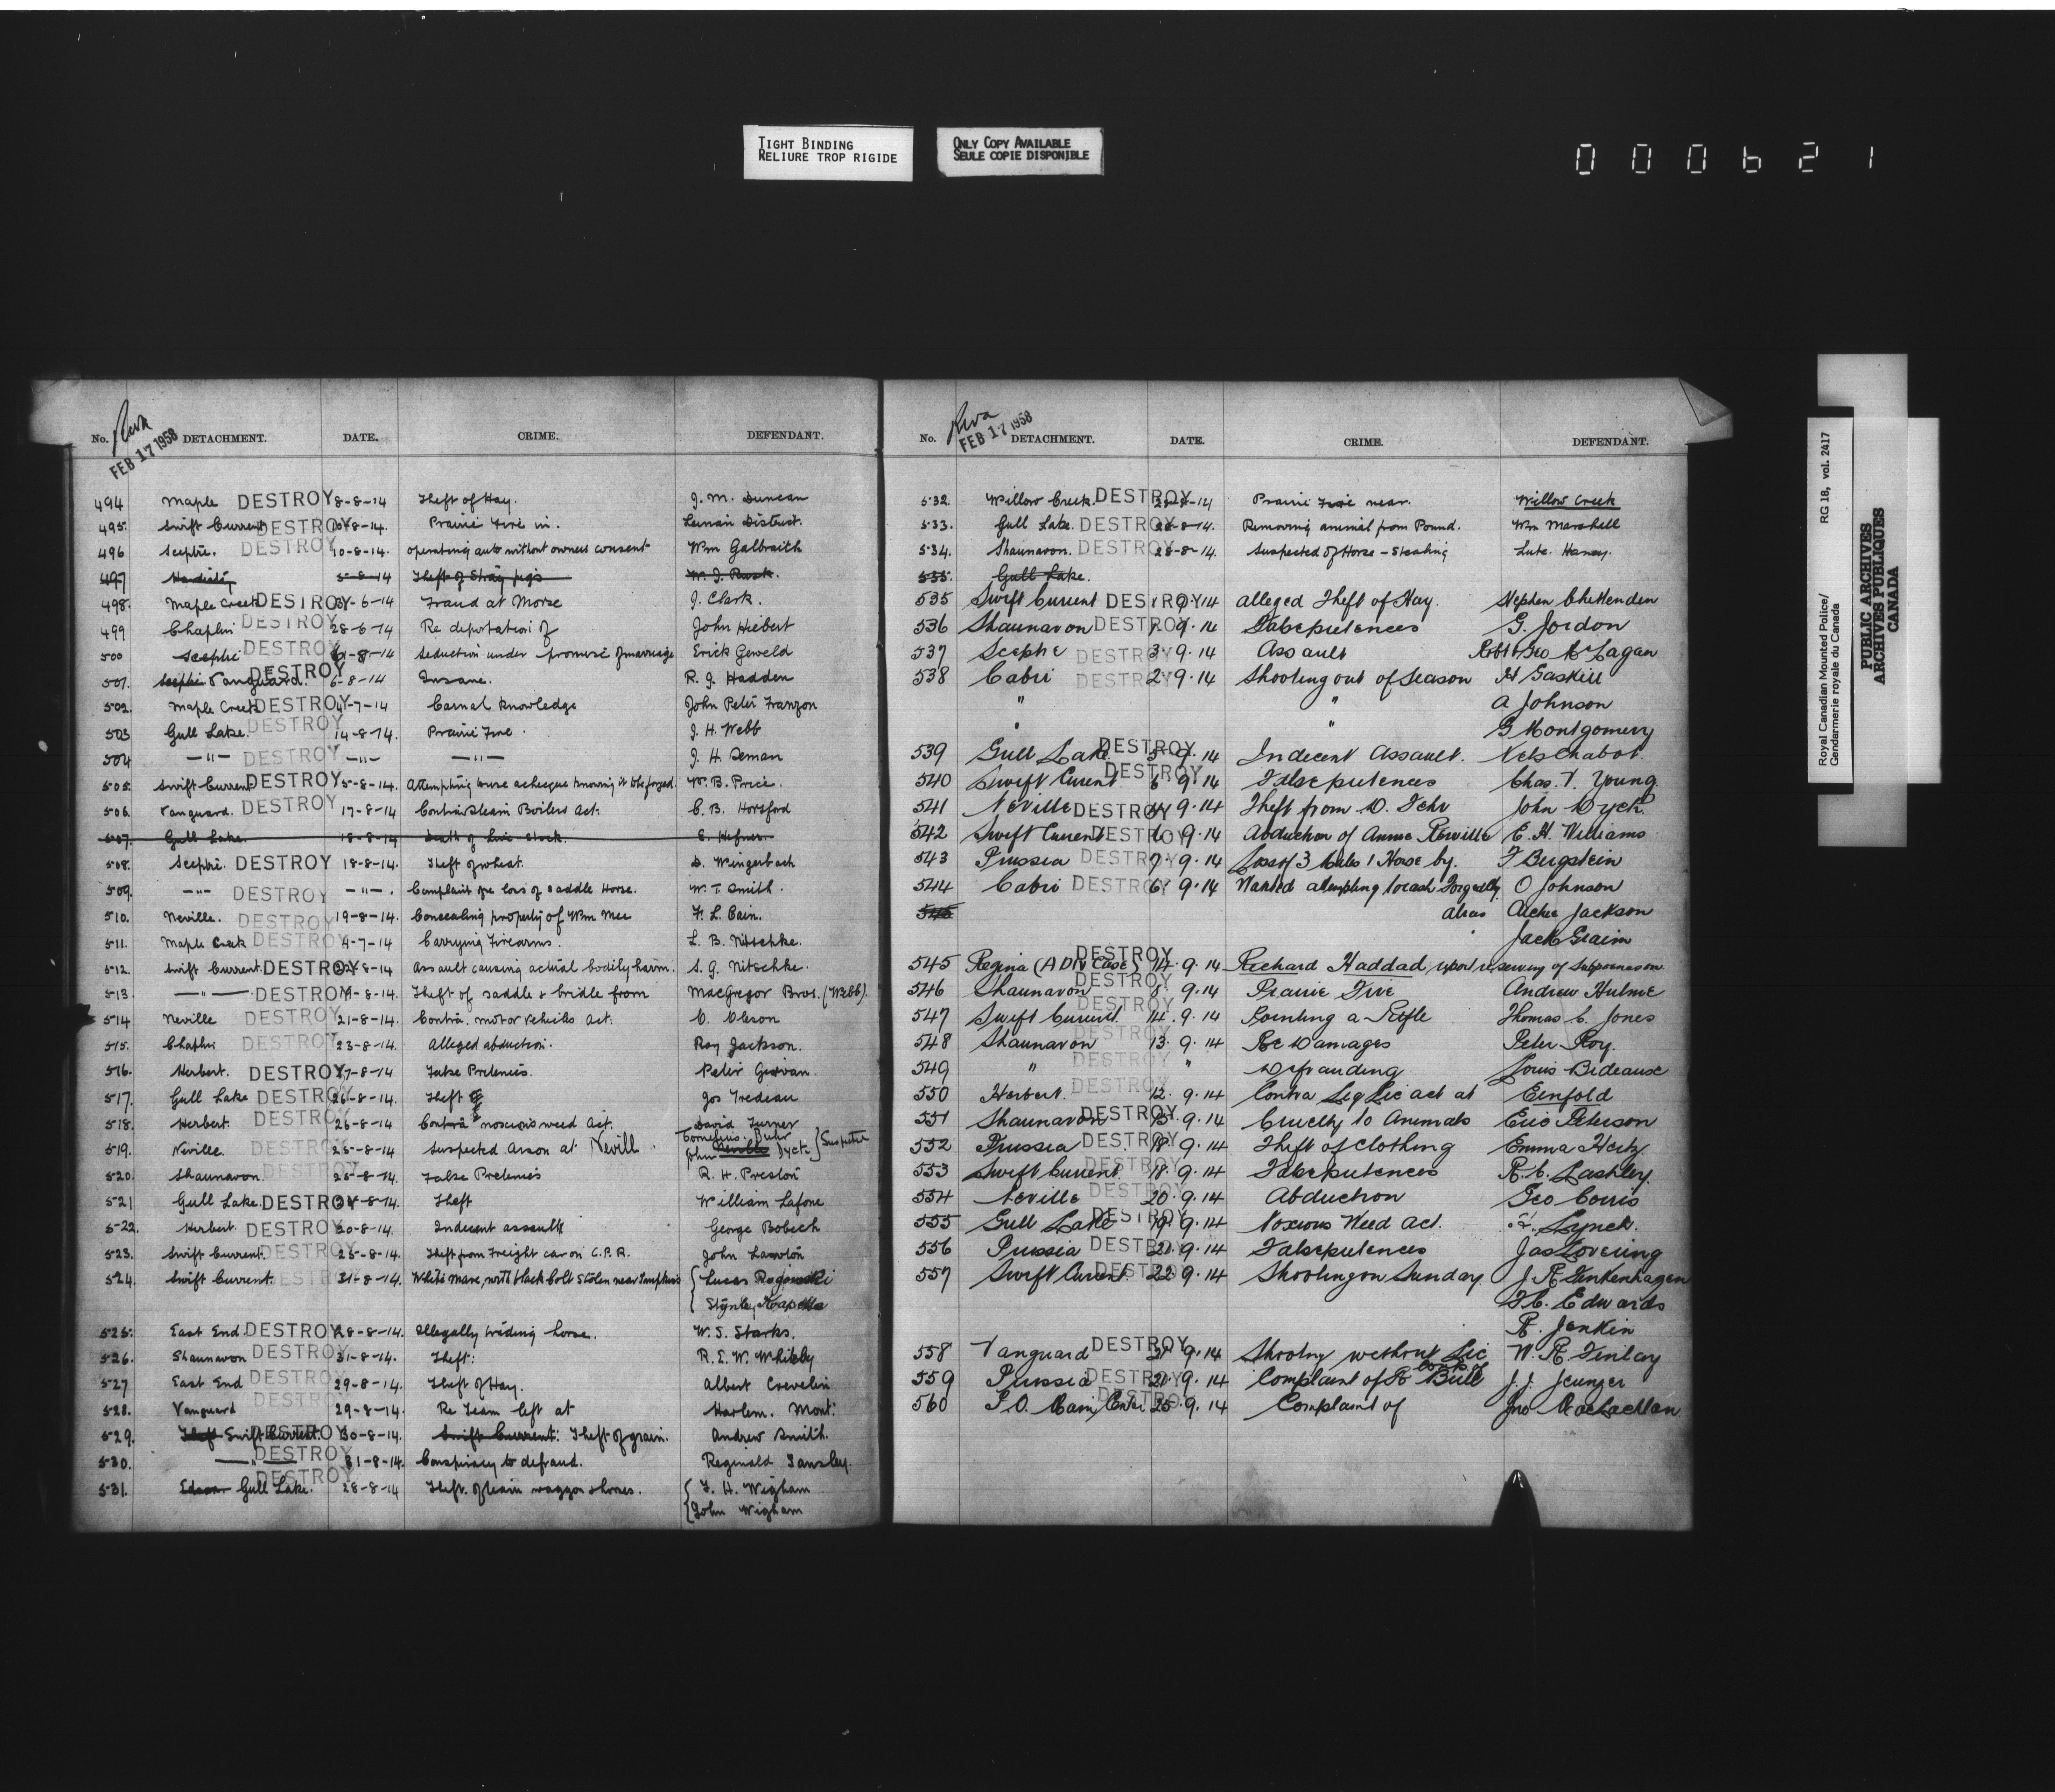 TIGHT BINDING
RELIURE TROP RIGIDE
ONLY COPY AVAILABLE
SEULE COPIE DISPONIBLE
000621
FEB 17 1958
No. DETACHMENT. DATE. CRIME. DEFENDANT.
494 Maple DESTROY 8-8-14 Theft of Hay. J. M. Duncan
495. Swift Current DESTROY -8-14. Prairie Fire in. District.
496 Sceptre. DESTROY 10-8-14. operating auto without owners consent Wm Galbraith
497 5-8-14 Theft of Stray pigs
498. Maple Creek DESTROY -6-14 Fraud at Morse J. Clark.
499 Chaplin DESTROY 28-6-14 Re deportation of John Hiebert
500 Sceptre DESTROY -8-14 Seduction under promise of marriage Erick Geweld
501. Sceptre Vanguard. DESTROY 6-8-14 Insane. R. J. Hadden
502. Maple Creek DESTROY -7-14 Carnal knowledge John Peter Franzon
503 Gull Lake. DESTROY 14-8-14. Prairie Fire. J. H. Webb
504 —"— DESTROY —"— —"— J. H. Seman
505. Swift Current DESTROY 5-8-14. Attempting to use a cheque knowing it to be forged. W. B. Price.
506. Vanguard. DESTROY 17-8-14 Contra Steam Boilers Act. C. B. Horsford
507. Gull Lake. 18-8-14 Death of Live Stock. E. Hefner
508. Sceptre. DESTROY 18-8-14. Theft of wheat. D. Wingerbach
509. —"— DESTROY —"—. Complaint re loss of saddle Horse. W. T. Smith.
510. Neville. DESTROY 19-8-14. Concealing property of Wm Mee F. L. Cain.
511. Maple Creek DESTROY 4-7-14 Carrying Firearms. L. B. Nitschke.
512. Swift Current. DESTROY -8-14 Assault causing actual bodily harm. S. G. Nitschke.
513. —"— DESTROY -8-14. Theft of saddle & bridle from MacGregor Bros. (Webb).
514 Neville DESTROY 21-8-14. Contra. motor vehicles Act. O. Oleson
515. Chaplin DESTROY 23-8-14. Alleged abduction. Roy Jackson.
516. Herbert. DESTROY 17-8-14 False Pretences. Peter
517. Gull Lake DESTROY 26-8-14. Theft Jos Tredeau
518. Herbert. DESTROY 26-8-14 Contra noxious weed Act. David Turner
519. Neville. DESTROY 25-8-14 Suspected Arson at Nevill. Cornelius Buhr
John Neville Dyck } Suspects
520. Shaunavon. DESTROY 25-8-14. False Pretences R. H. Preston
521 Gull Lake. DESTROY -8-14. Theft William Lafone
522. Herbert. DESTROY 20-8-14. Indecent assault George Bobech
523. Swift Current. DESTROY 25-8-14. Theft from Freight car on C.P.R. John Lawton
524. Swift Current. DESTROY 31-8-14. White Mare, with black colt stolen near Simpkins { Lucas Rogowski
Stynley Kapella
525. East End. DESTROY 28-8-14. Illegally trading horse. W. S. Starks.
526. Shaunavon DESTROY 31-8-14. Theft: R. E. W. Whitby
527 East End DESTROY 29-8-14. Theft of Hay. Albert Crevelin
528. Vanguard DESTROY 29-8-14. Re Team left at Harlem. Mont.
529. Theft Swift Current. DESTROY 30-8-14. Swift Current: Theft of grain. Andrew Smith.
530. —"— DESTROY 31-8-14. Conspiracy to defraud. Reginald Tansley.
531. Gull Lake. DESTROY 28-8-14 Theft of team waggon & horses. { F. H. Wigham
John Wigham
FEB 17 1958
No. DETACHMENT. DATE. CRIME. DEFENDANT.
532. Willow Creek. DESTROY 28-8-14 Prairie Fire near. Willow Creek
533. Gull Lake. DESTROY 26-8-14. Removing animal from Pound. Wm Marshall
534. Shaunavon. DESTROY 28-8-14. Suspected of Horse-Stealing Lute. Haney.
535. Gull Lake.
535 Swift Current DESTROY 9·14 alleged Theft of Hay. Stephen Chittenden
536 Shaunavon DESTROY 9·14 Falsepretences G. Jordon
537 Sceptre DESTROY 3·9·14 Assault Robt & Geo McLagan
538 Cabri DESTROY 2·9·14 Shooting out of Season H Gaskill
" " A Johnson
" " G Montgomery
539 Gull Lake. DESTROY 5·9·14 Indecent Assault. Nels Chabot.
540 Swift Current DESTROY 6 9·14 Falsepretences Chas. T. Young
541 Neville DESTROY 9·14 Theft from D. Fehr John Dyck
542 Swift Current DESTROY 6 9·14 Abduction of Annie Reville E. H. Williams
543 Prussia DESTROY 7·9·14 Loss of 3 Mules 1 Horse by. F Bergstein
544 Cabri DESTROY 6 9·14 Wanted attempting to cash Forged chq. O Johnson
545 alias Archie Jackson
Jack Graim
545 Regina (A Div Case) DESTROY 14·9·14 Richard Haddad, upon reserving of Subpoenas on
546 Shaunavon DESTROY 8·9·14 Prairie Fire Andrew Hulme
547 Swift Current. DESTROY 14·9·14 Pointing a Rifle Thomas C. Jones
548 Shaunavon DESTROY 13·9·14 Re Damages Peter Roy.
549 " DESTROY " Defrauding Louis Bideause
550 Herbert. DESTROY 12·9·14 Contra Liq Lic act at Ernfold
551 Shaunavon DESTROY 15·9·14 Cruelty to Animals Eric Peterson
552 Prussia DESTROY 18·9·14 Theft of Clothing Emma Hertz
553 Swift Current. DESTROY 18·9·14 Falsepretences R. C. Lashley
554 Neville DESTROY 20·9·14 Abduction Geo Corris
555 Gull Lake DESTROY 19·9·14 Noxious Weed Act. Lynch.
556 Prussia DESTROY 21·9·14 Falsepretences Jas Lovering
557 Swift Current DESTROY 22·9·14 Shooting on Sunday J. R. Finkenhagen
F. C. Edwards
R. Jenkin
558 Vanguard DESTROY 21·9·14 Shooting without Lic W. R. Finlay
559 Prussia DESTROY 21·9·14 Complaint of R Bull J. J. Jeunger
560 DESTROY 25·9·14 Complaint of Jno MacLachlan
Royal Canadian Mounted Police/ RG 18, vol. 2417
Gendarmerie royale du Canada
PUBLIC ARCHIVES
ARCHIVES PUBLIQUES
CANADA